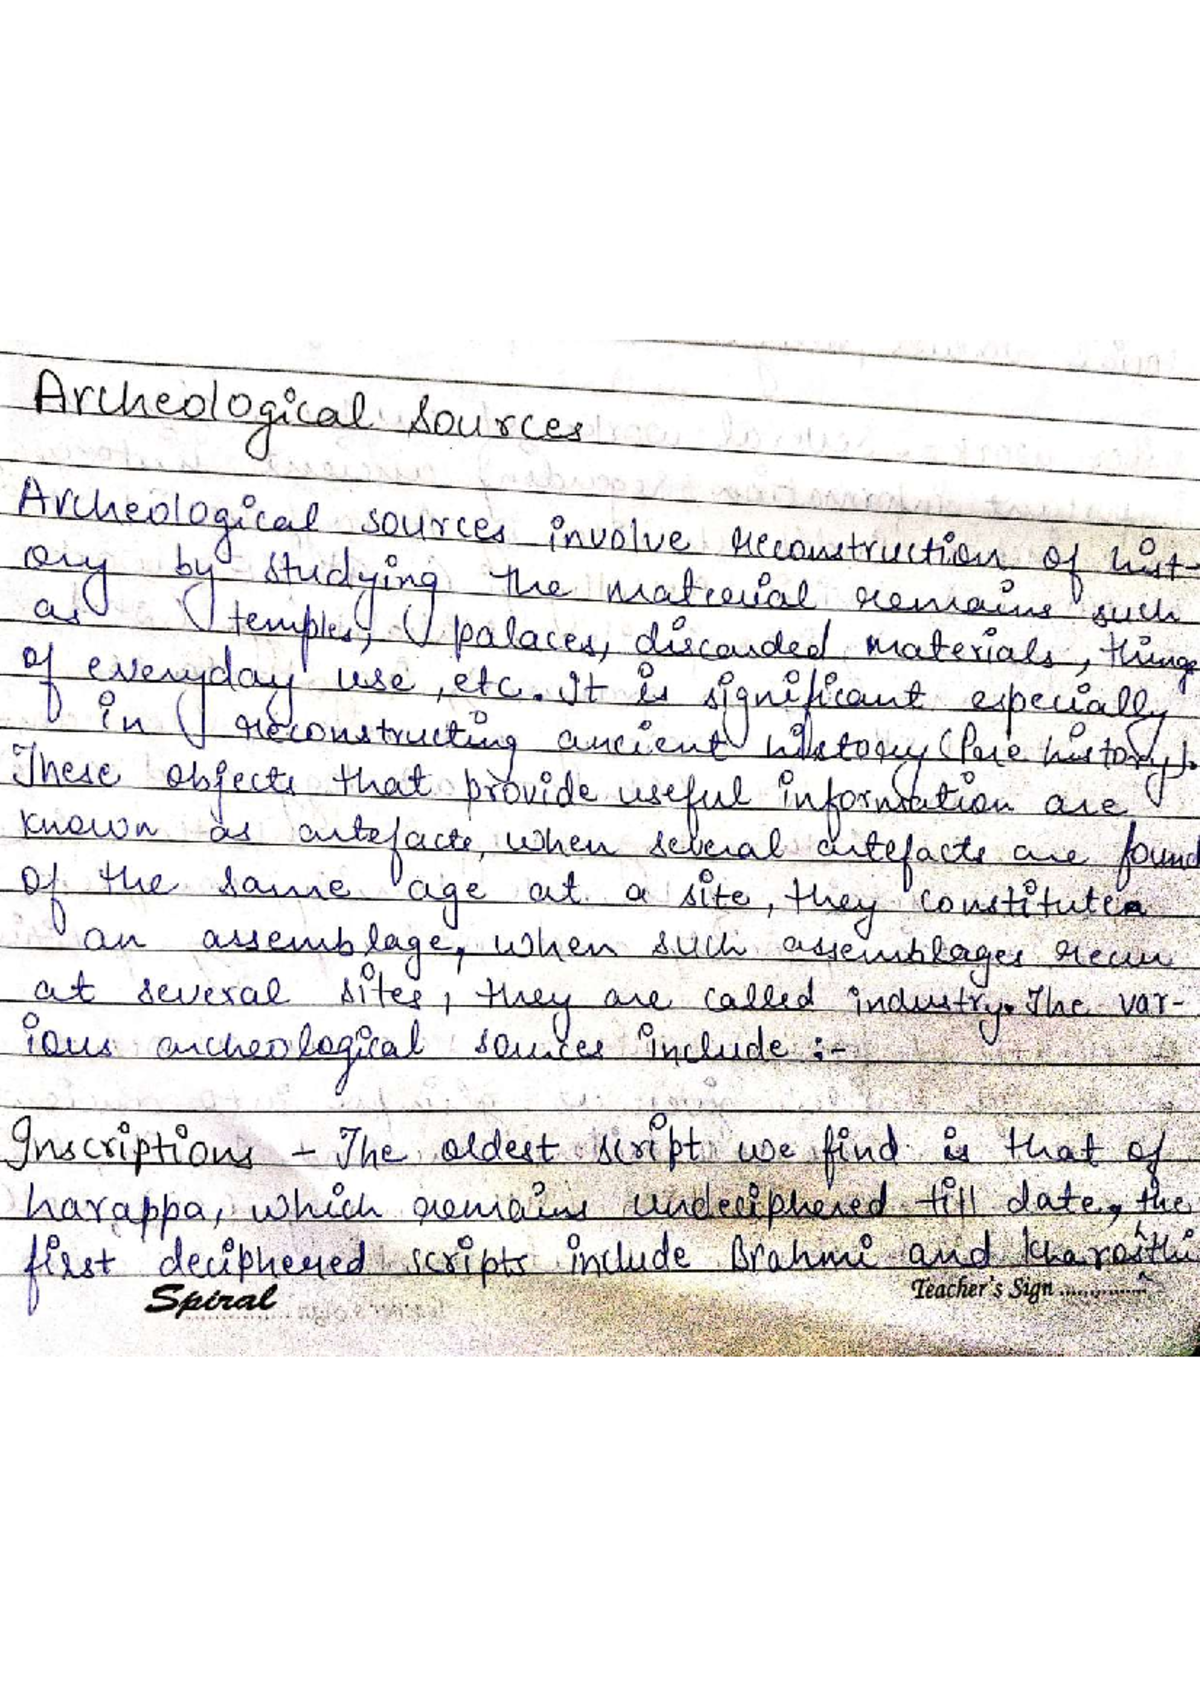 Archeological sources
Archeological sources involve reconstruction of hist-
ory by studying the material remains such
as temples, palaces, discarded materials, things
of everyday use, etc. It is significant especially
in reconstructing ancient history (Pre history).
These objects that provide useful information are
known as artefacts, when several artefacts are found
of the same age at a site, they constitutes
an assemblage, when such assemblages recur
at several sites, they are called industry. The var-
ious archeological sources include :-
Inscriptions - The oldest script we find is that of
harappa, which remains undeciphered till date, the
first deciphered scripts include Brahmi and kharosthi
Spiral Teacher's Sign ...............